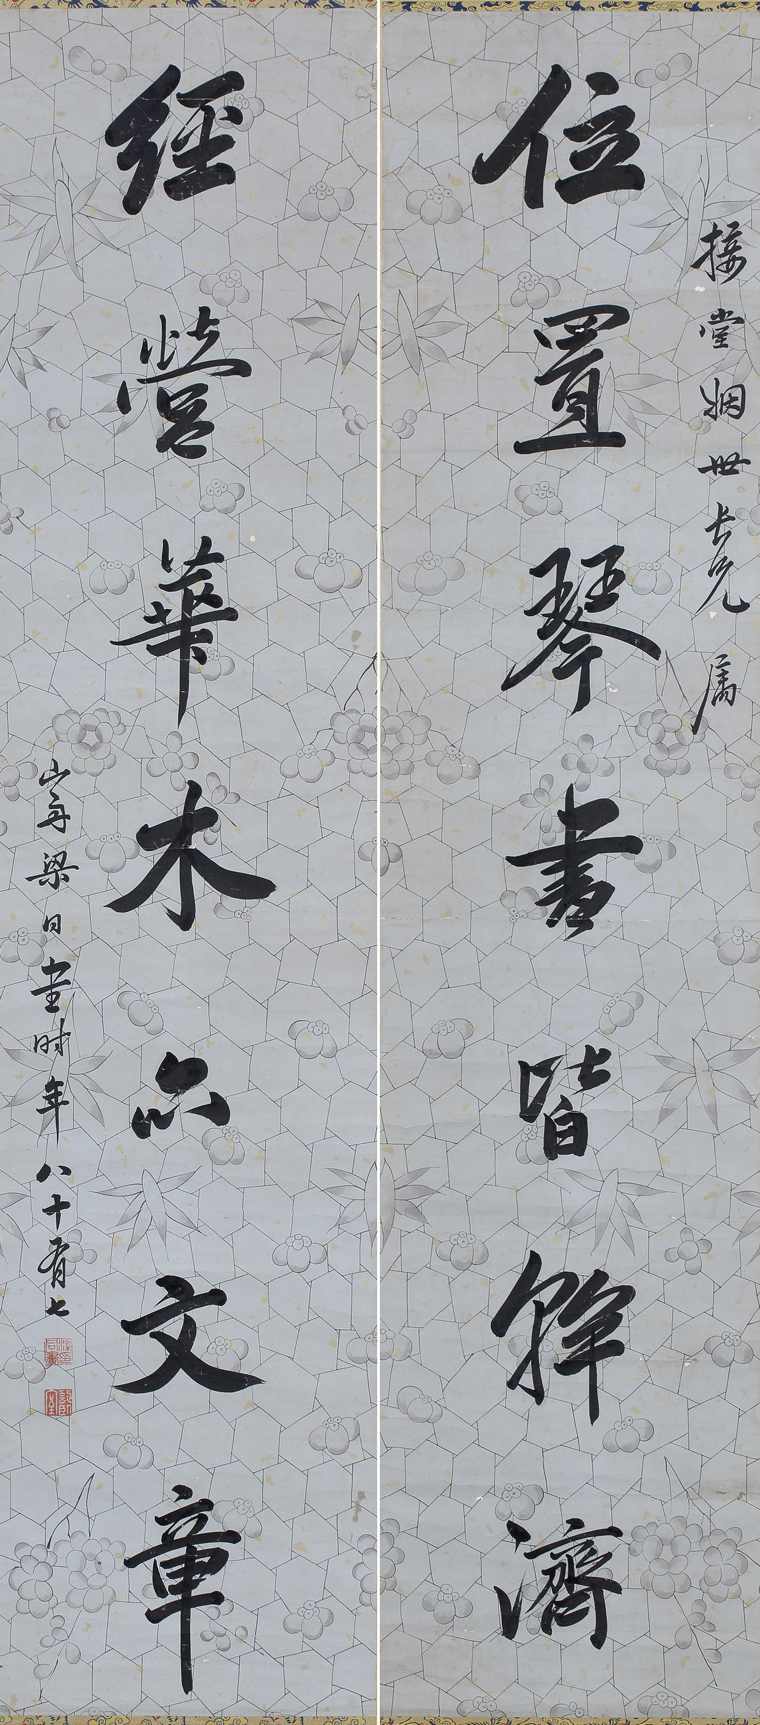 接堂姻世長兄属
位置琴書皆幹濟
經營華木亦文章
山舟梁同書時年八十有七